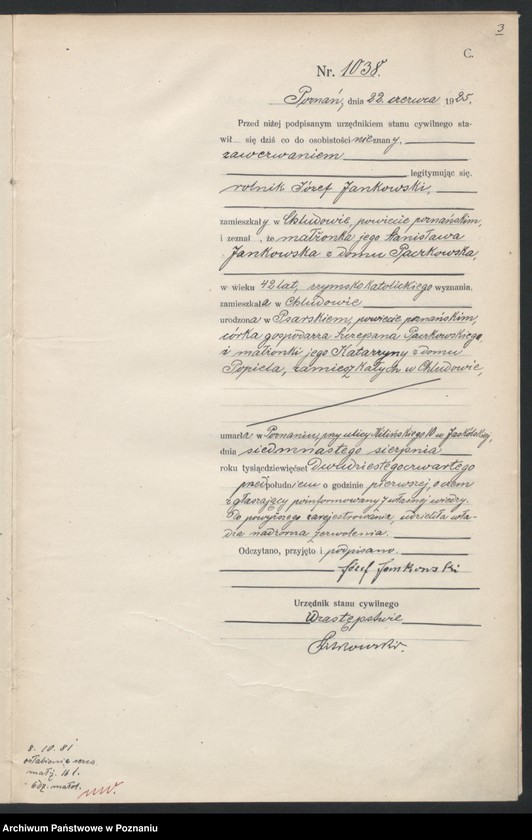 3
C.
Nr. 1038.
Poznań, dnia 22 czerwca 1925.
Przed niżej podpisanym urzędnikiem stanu cywilnego sta-
wił się dziś co do osobistości nieznany,
zawezwaniem
legitymując się.
rolnik Józef Jankowski,
zamieszkały w Chludowie, powiecie poznańskim,
i zeznał, że małżonka jego Stanisława
Jankowska z domu Paczkowska,
w wieku 42 lat, rzymsko katolickiego wyznania,
zamieszkała w Chludowie
urodzona w Psarskiem, powiecie poznańskim,
córka gospodarza Szczepana Paczkowskiego,
i małżonki jego Katarzyny z domu
Popiela, zamieszkałych w Chludowie,
umarła w Poznaniu, przy ulicy Kilińskiego 10 u
dnia siedmnastego sierpnia
roku tysiącdziewięćset Dwudziestegoczwartego
przedpołudniem o godzinie pierwszej, o czem
zgłaszający poinformowany z własnej wiedzy.
Do powyższego zarejestrowania, udzieliła wła-
dza nadzorcza zezwolenia.
Odczytano, przyjęto i podpisano.
Józef Jankowski
Urzędnik stanu cywilnego
W zastępstwie
8. 10. 81
osłabienie serca
małż. 16 l.
Archiwum Państwowe w Poznaniu